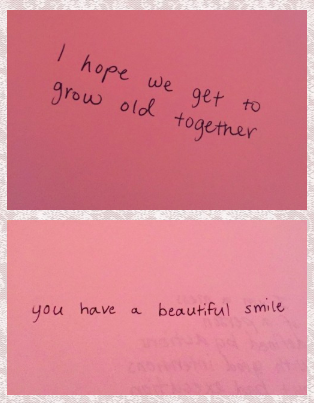 I hope we get to
grow old together
you have a beautiful smile